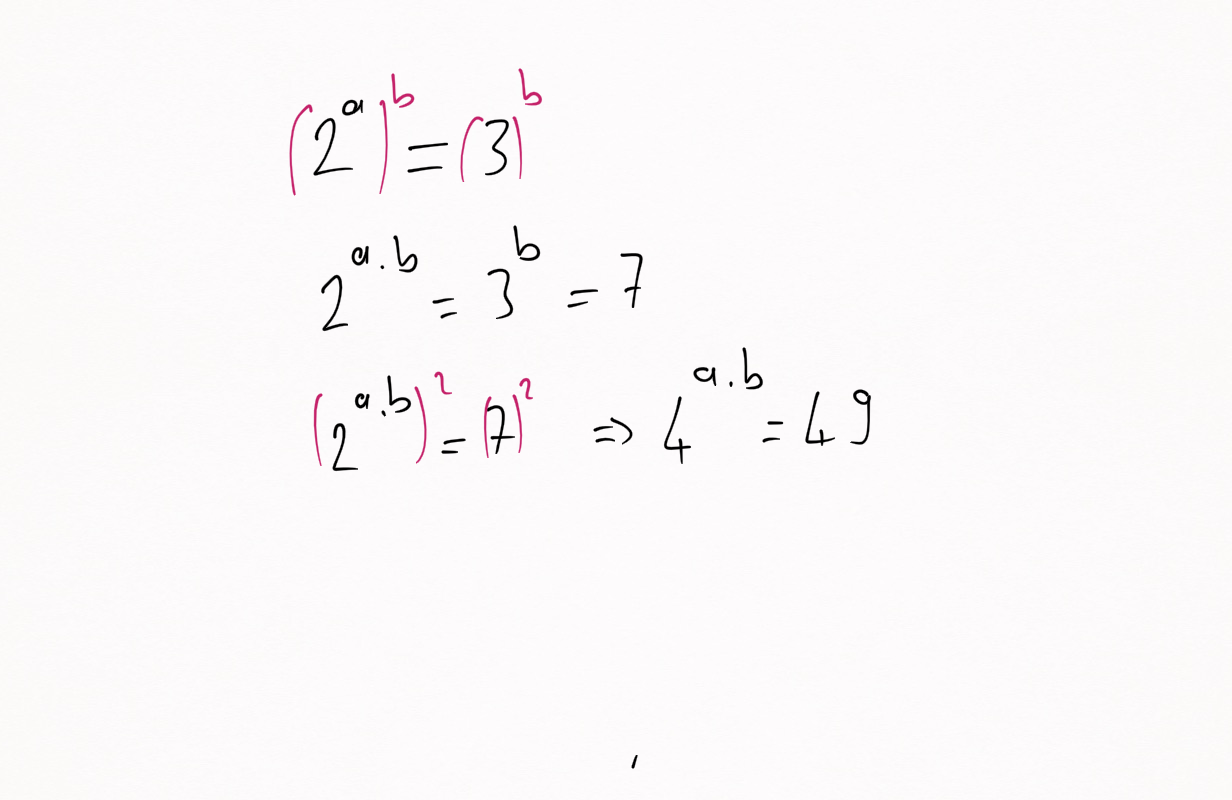 (2^a)^b = (3)^b
2^{a.b} = 3^b = 7
(2^{a.b})^2 = (7)^2 ⇒ 4^{a.b} = 49